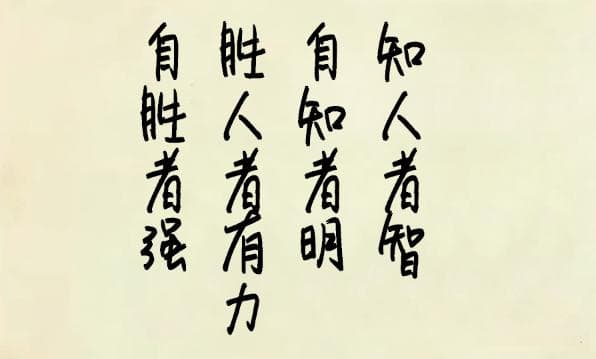 知人者智
自知者明
胜人者有力
自胜者强